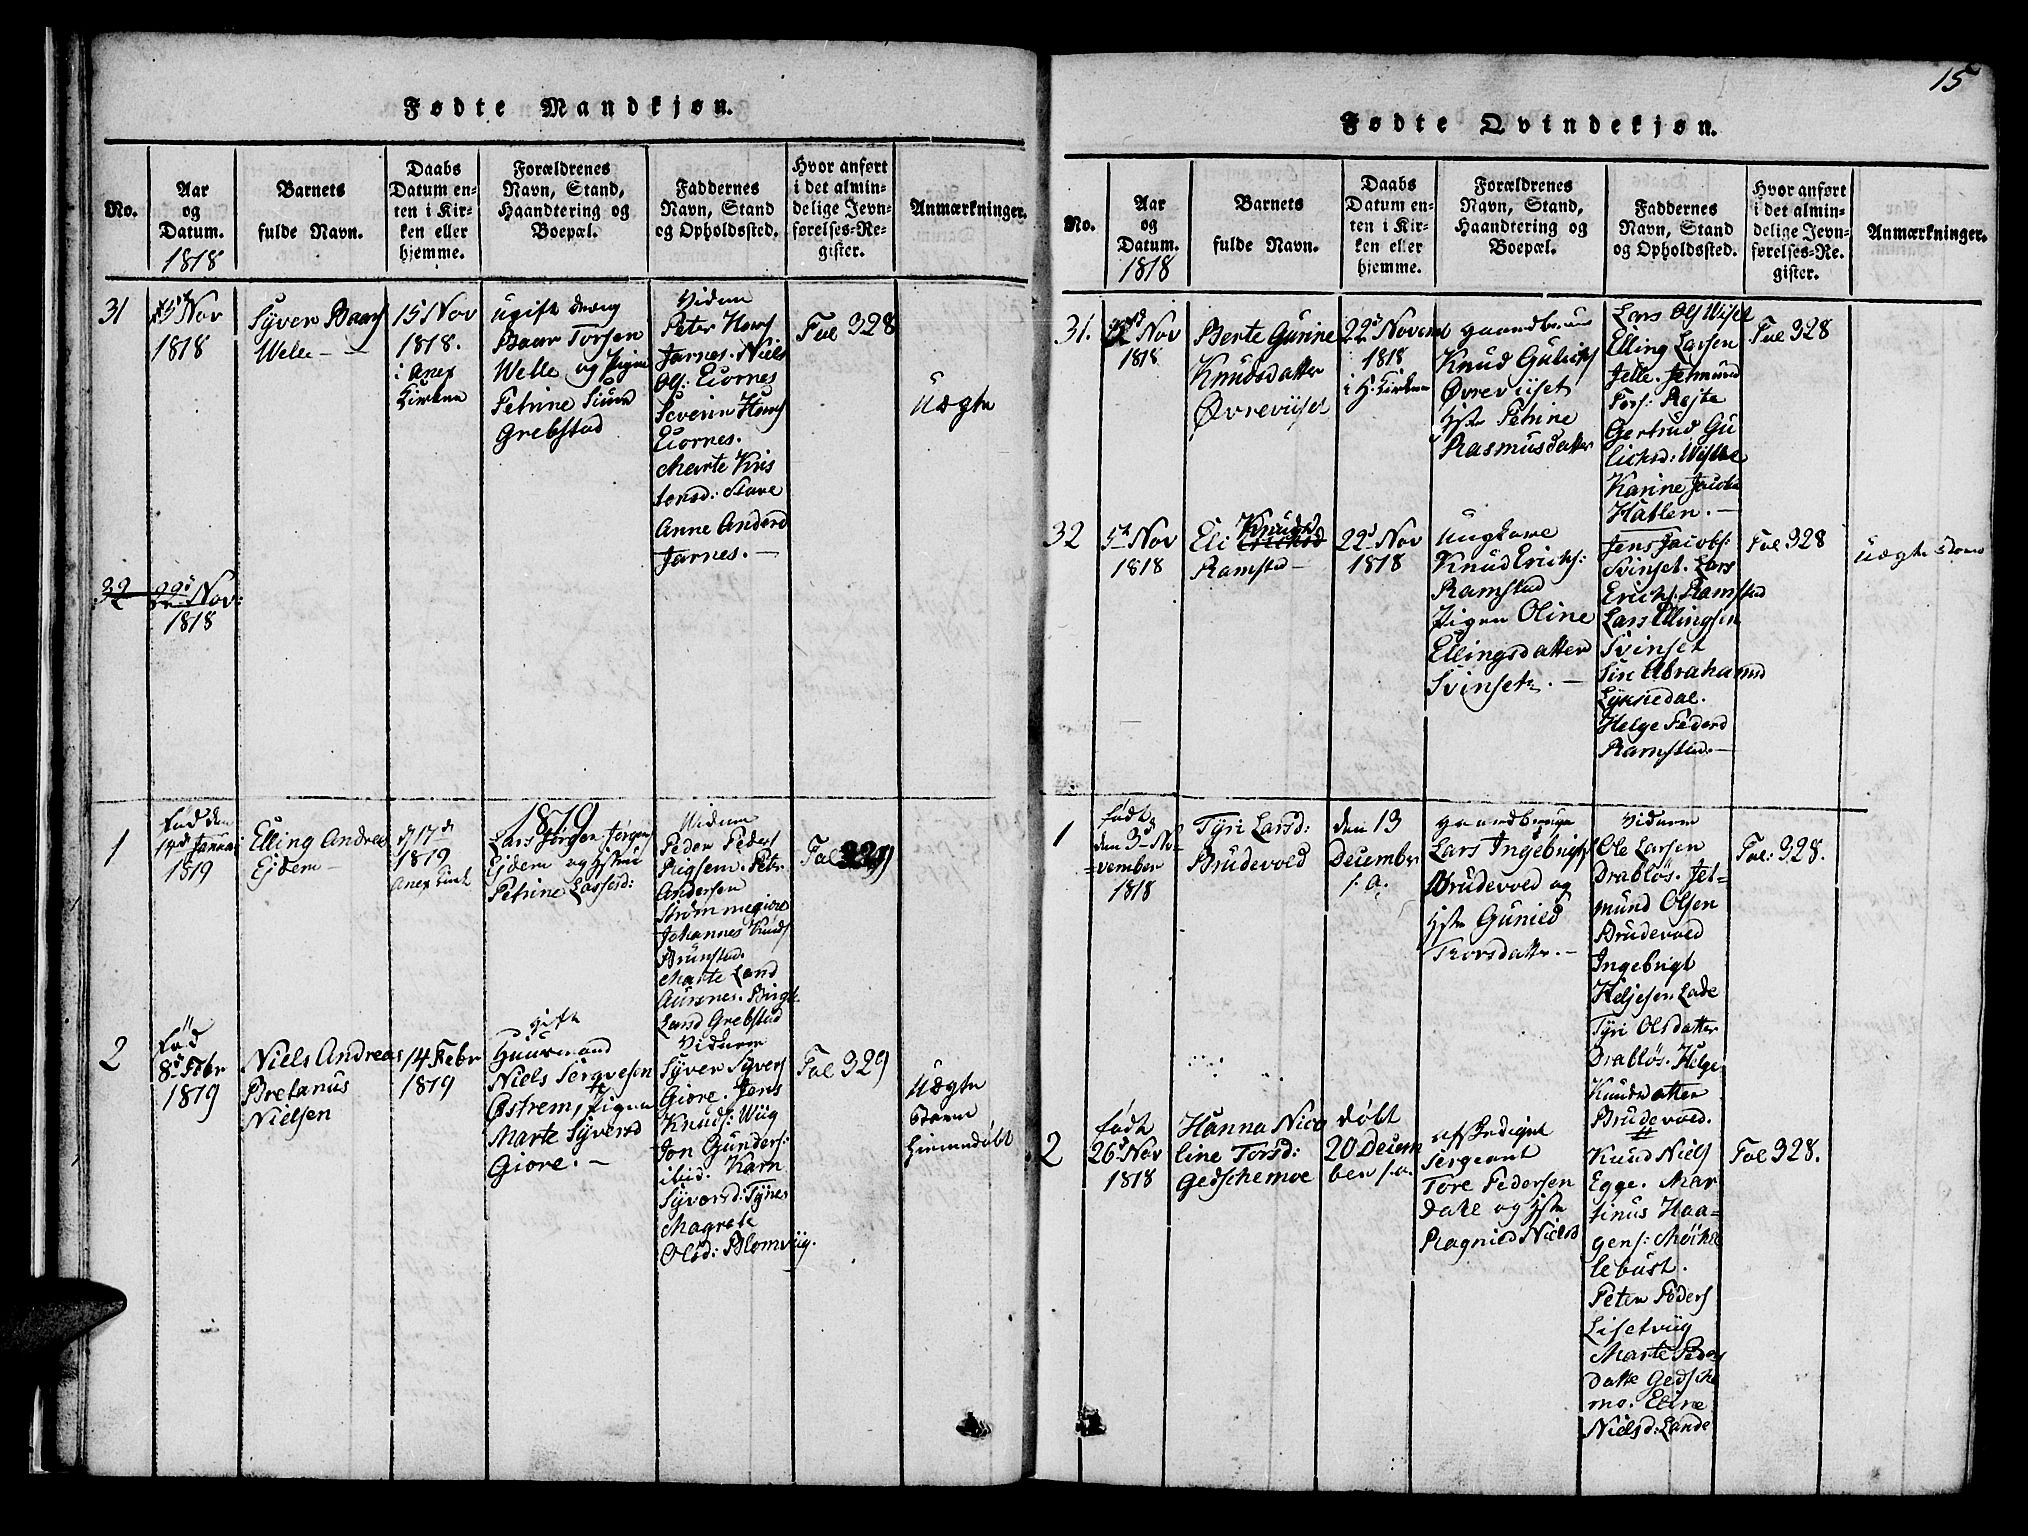 15
Fødte Mandkjøn.
No.
Aar
og
Datum.
1818
Barnets
fulde Navn.
Daabs
Datum en-
ten i Kir-
ken eller
hjemme.
Forældrenes
Navn, Stand,
Haandtering og
Boepæl.
Faddernes
Navn, Stand
og Opholdssted.
Hvor anført
i det almin-
delige Jevn-
førelses-Re-
gister.
Anmærkninger.
31
15 Nov
1818
Syver Baars
Welle
15 Nov
1818.
i anex
Kirken
ugift dreng
Baar Torsen
Welle og Pigen
Petrine
Grebstad
Vidne
Peter Hans
Jarnes. Niels
Ols: Eiornes
Severin Hans
Eiornes.
Marte Kris
tensd: Stave
Anne Andersd
Jarnes.
Fol 328
Uægte
32
22d Nov:
1818
1819
1
Fød den
14d Januar
1819
Elling Andreas
Ejdem
d 17d
1819
Anex Kirk
Lars Jørgen Jørgens
Ejdem og hstru
Petrine Lassesd:
Vidne
Peder Peders
Petr.
Andersen
Strømmegiore
Johannes Knuds
Brunstad.
Marte Larsd
Aursnes. Birgt
Larsd Grebstad
Fol 329
2
Fød
8d Febr
1819
Niels Andreas
Bretanus
Nielsen
14 Febr
1819
gift
Huusmand
Niels Sergvesen
Astrem, Pigen
Marte Syversd
Giore.
Vidne
Syver Syvers
Giore. Jens
Knuds: Wiig
Jon Gunders:
ibid. Karn
Syversd: Tynes
Magrete
Olsd: Blomviig.
Fol 329
Uægte
Større
hiemmedøbt
Fødte Qvindekjøn.
No.
Aar
og
Datum.
1818
Barnets
fulde Navn.
Daabs
Datum en-
ten i Kir-
ken eller
hjemme.
Forældrenes
Navn, Stand,
Haandtering og
Boepæl.
Faddernes
Navn, Stand
og Opholdssted.
Hvor anført
i det almin-
delige Jevn-
førelses-Re-
gister.
Anmærkninger.
31.
Nov
1818
Berte Gurine
Knudsdatter
Øvreviiset
22d Novemb
1818
i H. Kirken
gaardbruger
Knud Gulichs
Øvreviiset
hstr Petrine
Rasmusdatter
Lars Ols Wiset
Elling Larsen
Jelle. Jetmund
Tors: Røjte
Gertrud Gu
lichsd: Wiset
Karine Jacobs
Hatlen.
Fol 328
32
5t Nov
1818
Eli Knudsd
Ramstad
22d Nov
1818
Ungkare
Knud Erichs:
Ramstad
Pigen Oline
Ellingsdatter
Svinset.
Jens Jacobs:
Svinset. Lars
Erichs: Ramstad
Lars Ellingsen
Svinset
Siri Abrahamsd
Lykkedal.
Helge Pedersd
Ramstad.
Fol 328
Uægte Større
1
født
den 3d No-
vember
1818
Tyri Larsd:
Brudevold
den 13
December
s. a.
gaardbruger
Lars Ingebrigts
Brudevold og
hstr Gunild
Thorsdatter.
Vidner
Ole Larsen
Drabløs. Jet-
mund Olsen
Brudevold
Ingebrigt
Heljesen Lade
Tyri Olsdatter
Drabløs. Helge
Knudsdatter
Brudevold.
Fol: 328.
2
født
26d Nov
1818
Hanna Nico
line Torsd:
Gedschemoe
døbt
20 Decem
ber s.a.
afskediget
Sergeant
Tore Pedersen
Dale og hstr
Ragnild Nielsd
Knud Niels
Egge. Mar
tinus Haa-
gens: Møkke
lebust.
Peter Peders
Lisetviig
Marte Peders
datte Gedsche
mo. Eline
Nielsd: Lande
Fol 328.